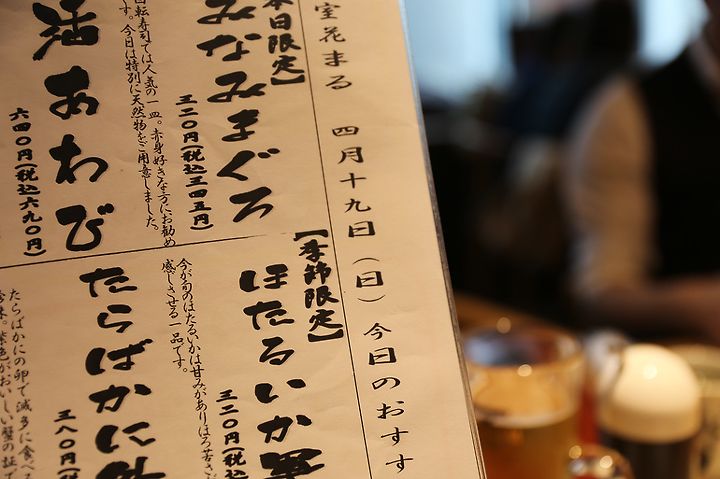 室花まる 四月十九日(日)今日のおすす
【本日限定】
みなみまぐろ
三二〇円(税込三四五円)
回転寿司では人気の一皿。赤身好きな方にお勧め
です。今日は特別に天然物をご用意しました。
活あわび
六四〇円(税込六九〇円)
【季節限定】
ほたるいか軍
三二〇円(税
今が旬のほたるいかは甘みがありほろ苦さ
感じさせる一品です。
たらばかに
三八〇円(税
たらばかにの卵で滅多に食べ
珍味。紫色がおいしい蟹の証で